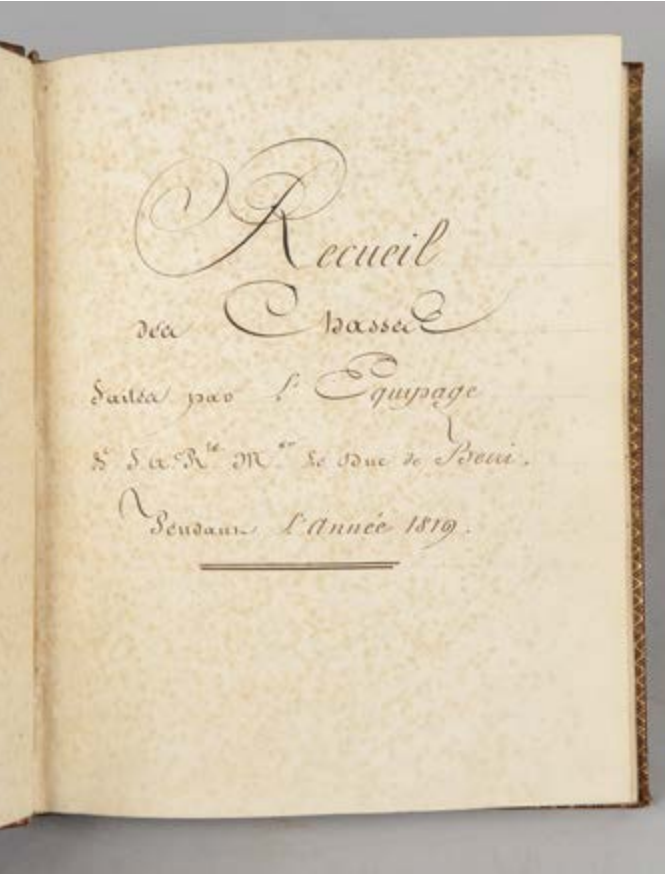 Recueil
des Chasses
faites par l'Equipage
de S.A.Rle Mgr Le Duc de Berri.
Pendant l'Année 1819.